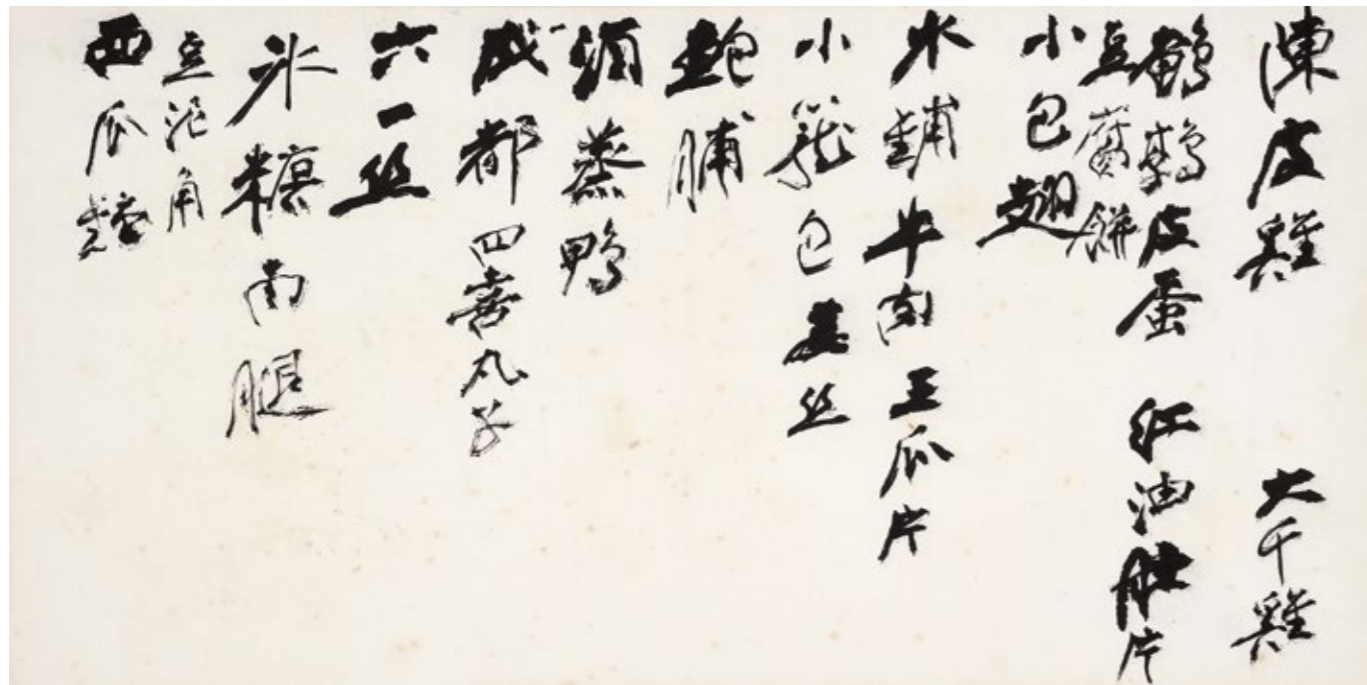 陳皮雞 大千雞
鵪鶉皮蛋 紅油肚片
豆腐餅
小包翅
水鋪牛肉 王瓜片
小籠包 姜丝
鮑脯
酒蒸鴨
成都四喜丸子
六一丝
冰糖南腿
豆泥角
西瓜盅